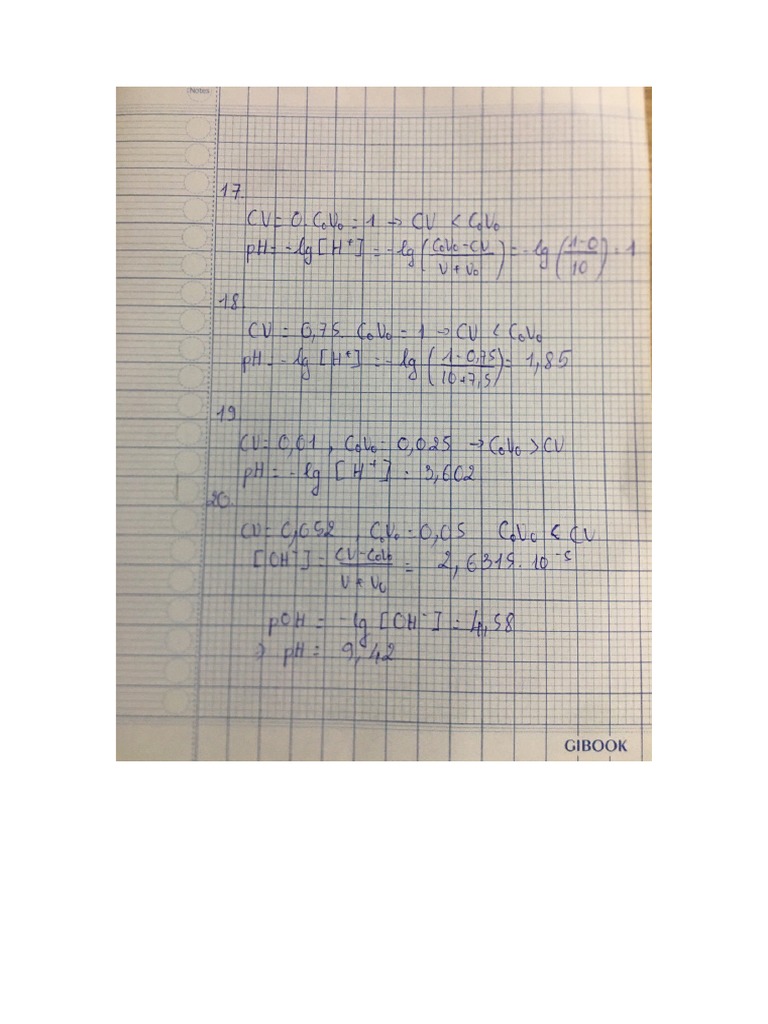 Notes
17.
CV = 0. C₀V₀ = 1 → CV < C₀V₀
pH = -lg [H⁺] = -lg (C₀V₀-CV / V+V₀) = -lg (1-0 / 10) = 1
18
CV = 0,75. C₀V₀ = 1 → CV < C₀V₀
pH = -lg [H⁺] = -lg (1-0,75 / 10+7,5) = 1,85
19
CV = 0,01 , C₀V₀ = 0,025 → C₀V₀ > CV
pH = -lg [H⁺] = 3,602
20.
CV = 0,052 , C₀V₀ = 0,05 C₀V₀ < CV
[OH⁻] = CV-C₀V₀ / V+V₀ = 2,6315.10⁻⁵
pOH = -lg [OH⁻] = 4,58
⇒ pH = 9,42
GIBOOK